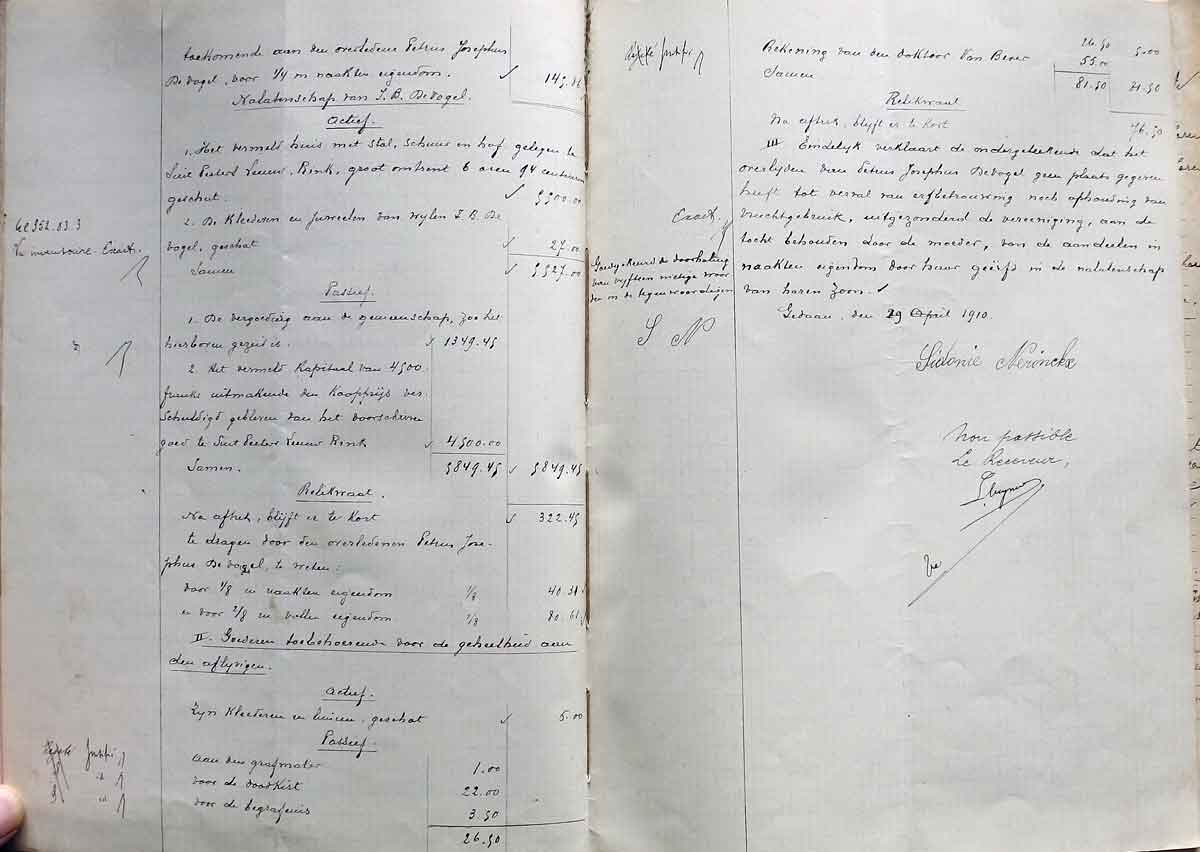 toekomende aan den overledene Petrus Josephus
De Vogel, voor 1/4 in naakten eigendom. 149.
Nalatenschap van J. B. De Vogel.
Actief.
1. Het vermeld huis met stal, schuur en hof gelegen te
Sint Pieters Leeuw, Rink, groot omtrent 6 aren 94 centiaren
geschat: 5500.00
2. De Kleederen en Juweelen van wijlen J. B. De
Vogel, geschat 27.00
Samen 5527.00
Passief.
1. De vergoeding aan de gemeenschap, zoo het
hierboven gezeid is. 1349.45
2. Het vermeld Kapitaal van 4500
franks uitmakende den Koopprijs ver
schuldigd gebleven van het voorschreven
goed te Sint Pieter Leeuw Rink 4.500.00
Samen. 5849.45 5849.45
Relikwaat.
Na aftrek, blijft er te Kort 322.45
te dragen door den overledenen Petrus Jose-
phus De Vogel, te weten:
voor 1/8 in naakten eigendom 1/8 40.31
en voor 2/8 in vollen eigendom 2/8 80.61
II. Goederen toebehoorende voor de geheelheid aan
den aflijvigen.
Actief.
Zijn Kleederen en linnen, geschat 5.00
Passief.
aan den grafmaker 1.00
voor de doodkist 22.00
voor de begrafenis 3.50
26.50
Exact.
26.50 5.00
Rekening van den doktoor Van Bever 55.00
Samen 81.50
Relikwaat
Na aftrek, blijft er te Kort 76.50
III Eindelijk verklaart de ondergeteekende dat het
overlijden van Petrus Josephus De Vogel geen plaats gegeven
heeft tot verval van erfbetrouwing noch afhouding van
vruchtgebruik, uitgezonderd de vereeniging, aan de
tocht behouden door de moeder, van de aandeelen in
naakten eigendom door haar geërfd in de nalatenschap
van haren zoon.
Gedaan, den 29 April 1910.
Exact.
Goedgekeurd de doorhaling
van vijftien nietige woor
den in de tegenwoordige
S N
Sidonie Nerinckx
Non passible
Le Receveur,